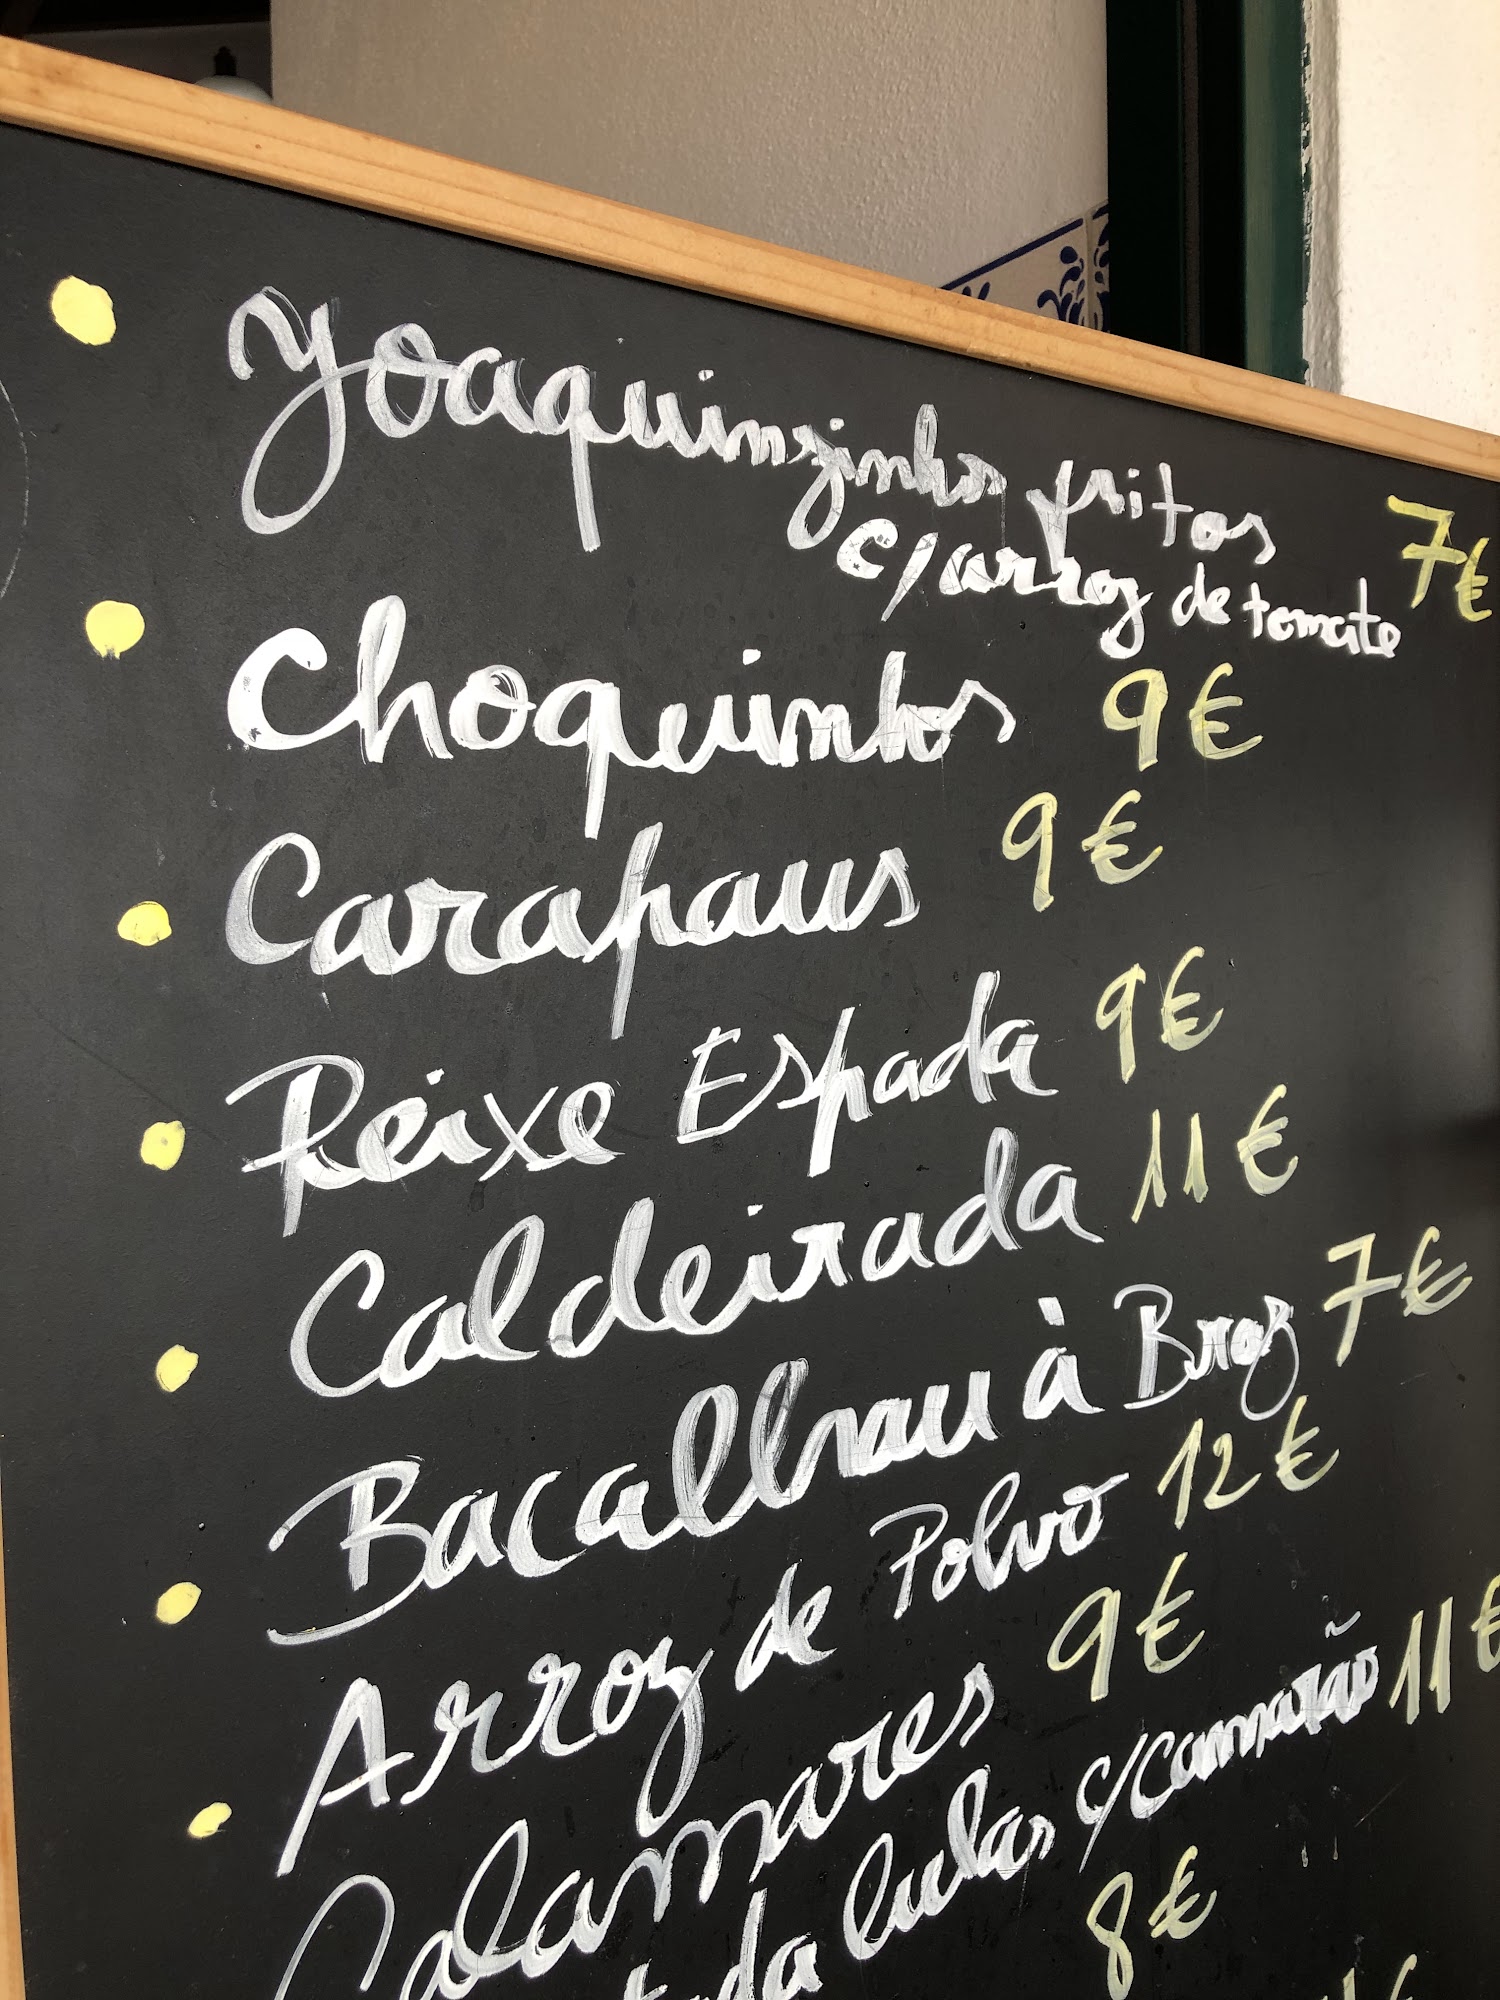 Joaquinzinhos fritos 7€
c/arroz de tomate
Choquinhos 9€
Carapaus 9€
Peixe Espada 9€
Caldeirada 11€
Bacalhau à Braz 7€
Arroz de Polvo 12€
Calamares 9€
lulas c/camarão 11€
8€